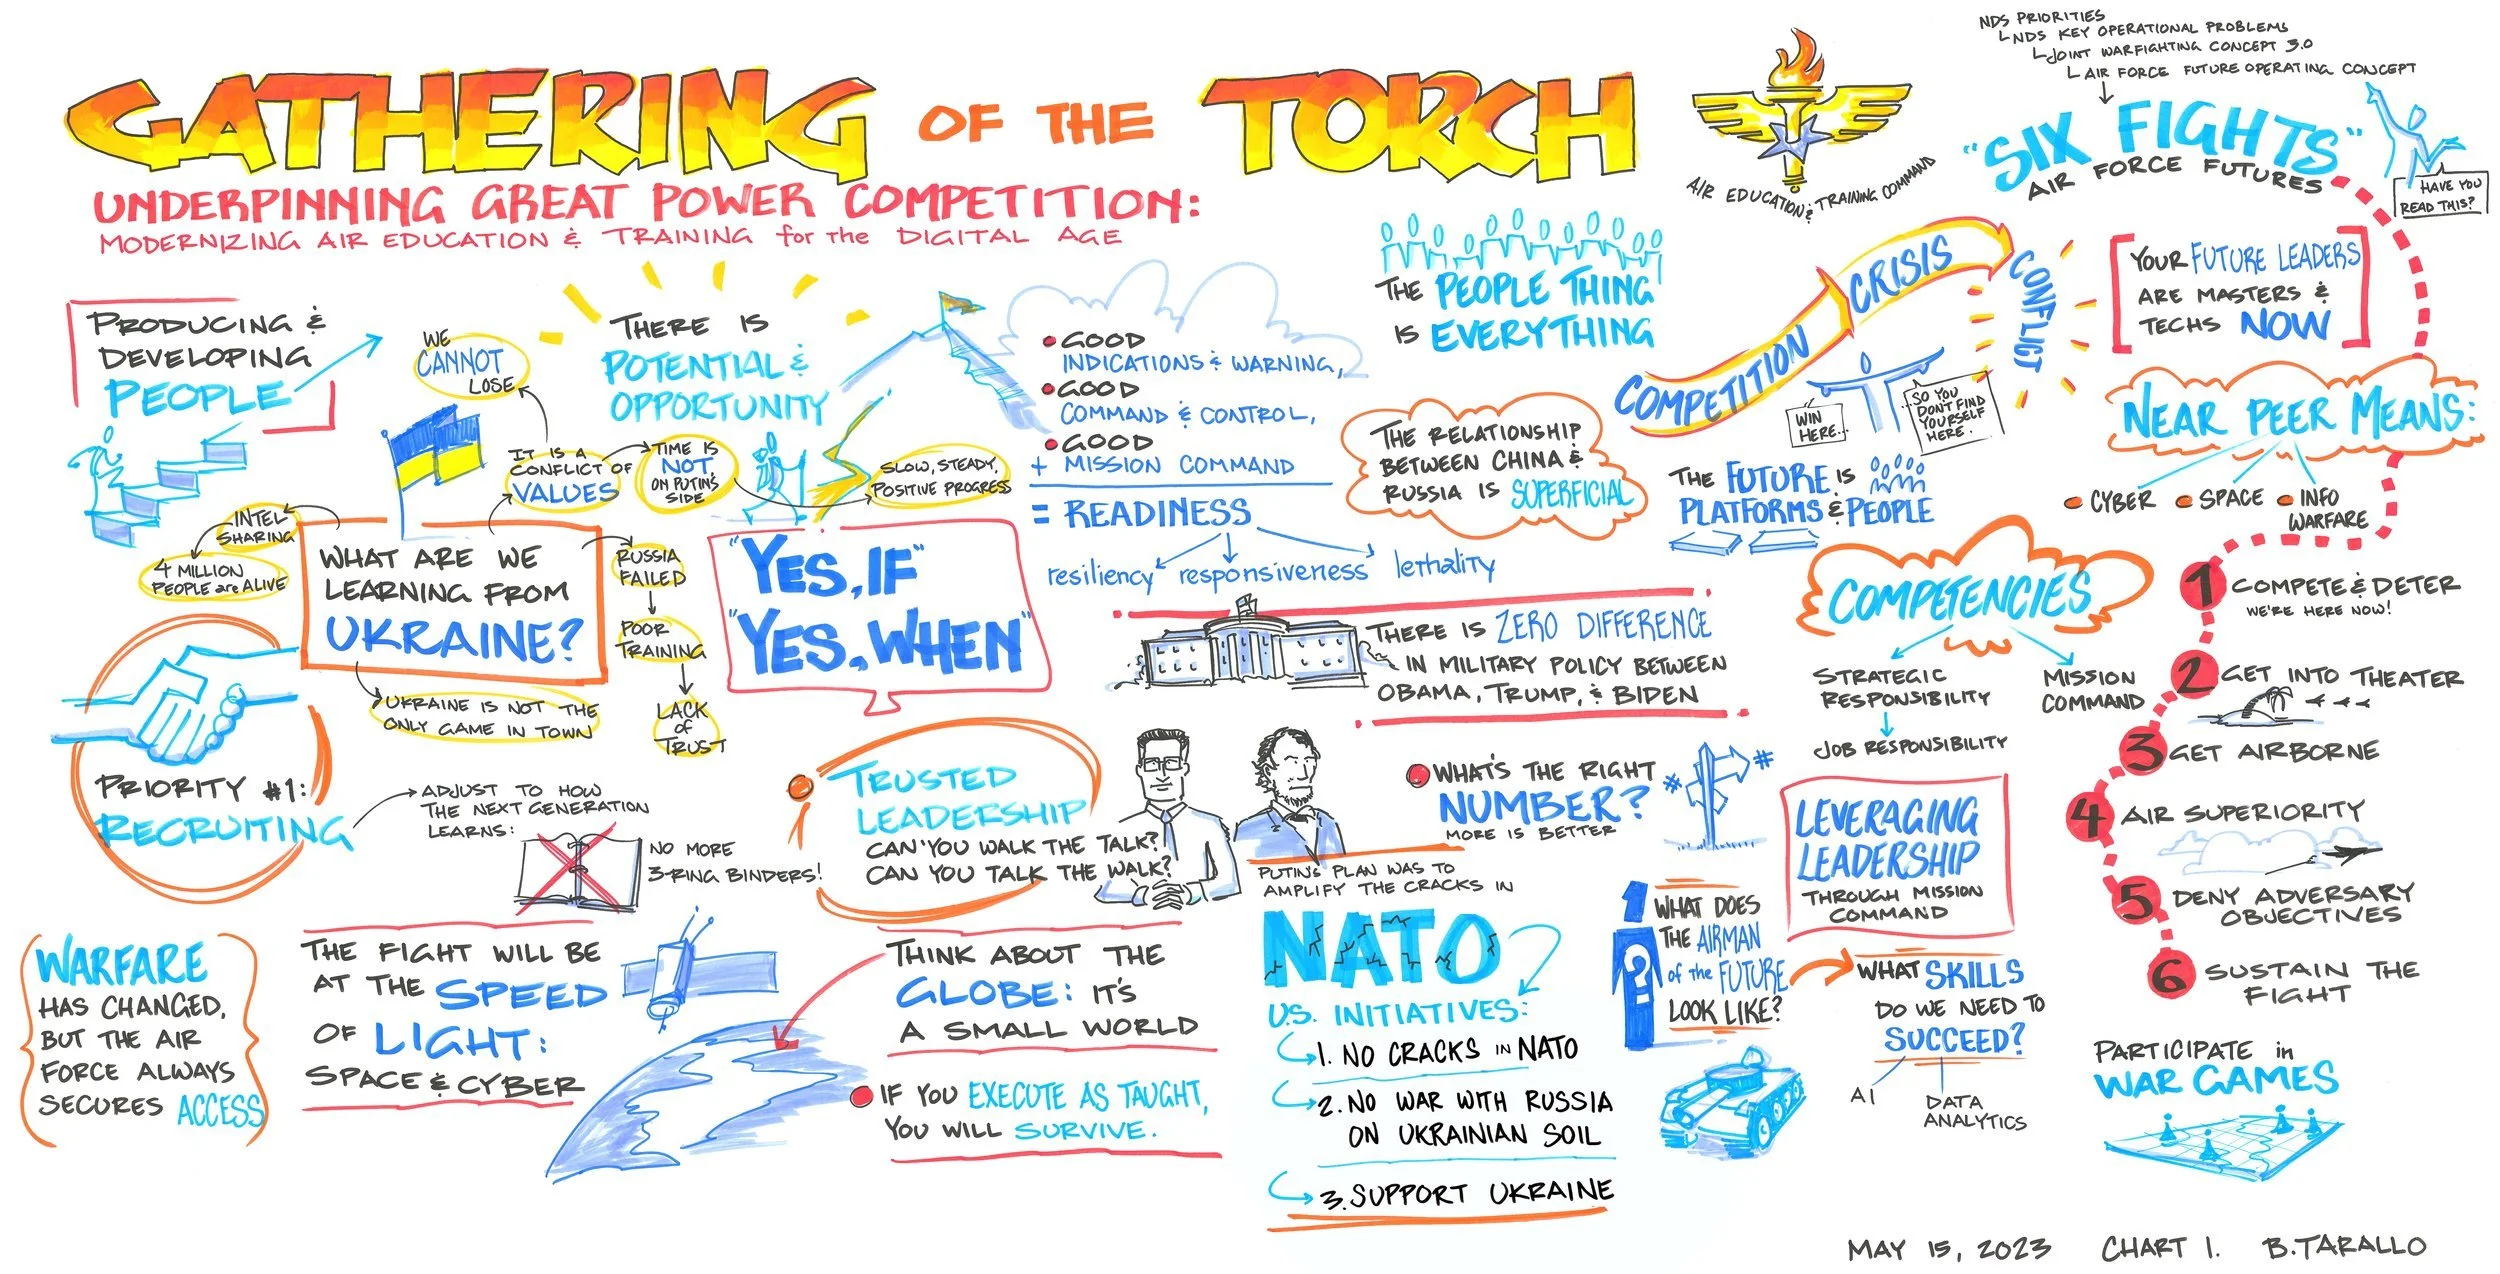 GATHERING OF THE TORCH
UNDERPINNING GREAT POWER COMPETITION:
MODERNIZING AIR EDUCATION & TRAINING for the DIGITAL AGE
AIR EDUCATION & TRAINING COMMAND
PRODUCING &
DEVELOPING
PEOPLE
WE
CANNOT
LOSE
IT IS A
CONFLICT OF
VALUES
TIME IS
NOT
ON PUTIN'S
SIDE
SLOW, STEADY,
POSITIVE PROGRESS
INTEL
SHARING
4 MILLION
PEOPLE are ALIVE
WHAT ARE WE
LEARNING FROM
UKRAINE?
RUSSIA
FAILED
POOR
TRAINING
LACK
of
TRUST
UKRAINE IS NOT THE
ONLY GAME IN TOWN
THERE IS
POTENTIAL &
OPPORTUNITY
"YES, IF"
"YES, WHEN"
GOOD
INDICATIONS & WARNING,
GOOD
COMMAND & CONTROL,
GOOD
+ MISSION COMMAND
= READINESS
resiliency responsiveness lethality
THE PEOPLE THING
IS EVERYTHING
THE RELATIONSHIP
BETWEEN CHINA &
RUSSIA IS SUPERFICIAL
THERE IS ZERO DIFFERENCE
IN MILITARY POLICY BETWEEN
OBAMA, TRUMP, & BIDEN
PRIORITY #1:
RECRUITING
ADJUST TO HOW
THE NEXT GENERATION
LEARNS:
NO MORE
3-RING BINDERS!
TRUSTED
LEADERSHIP
CAN YOU WALK THE TALK?
CAN YOU TALK THE WALK?
WARFARE
HAS CHANGED,
BUT THE AIR
FORCE ALWAYS
SECURES ACCESS
THE FIGHT WILL BE
AT THE SPEED
OF LIGHT:
SPACE & CYBER
THINK ABOUT THE
GLOBE: IT'S
A SMALL WORLD
IF YOU EXECUTE AS TAUGHT,
YOU WILL SURVIVE.
PUTIN'S PLAN WAS TO
AMPLIFY THE CRACKS IN
NATO
U.S. INITIATIVES:
1. NO CRACKS IN NATO
2. NO WAR WITH RUSSIA
ON UKRAINIAN SOIL
3. SUPPORT UKRAINE
WHAT'S THE RIGHT
NUMBER?
MORE IS BETTER
#
#
?
WHAT DOES
THE AIRMAN
of the FUTURE
LOOK LIKE?
COMPETITION
CRISIS
CONFLICT
WIN
HERE...
...SO YOU
DON'T FIND
YOURSELF
HERE.
THE FUTURE IS
PLATFORMS & PEOPLE
COMPETENCIES
STRATEGIC
RESPONSIBILITY
JOB RESPONSIBILITY
MISSION
COMMAND
LEVERAGING
LEADERSHIP
THROUGH MISSION
COMMAND
WHAT SKILLS
DO WE NEED TO
SUCCEED?
AI
DATA
ANALYTICS
NDS PRIORITIES
NDS KEY OPERATIONAL PROBLEMS
JOINT WARFIGHTING CONCEPT 3.0
AIR FORCE FUTURE OPERATING CONCEPT
"SIX FIGHTS"
AIR FORCE FUTURES
HAVE YOU
READ THIS?
YOUR FUTURE LEADERS
ARE MASTERS &
TECHS NOW
NEAR PEER MEANS:
CYBER
SPACE
INFO
WARFARE
1 COMPETE & DETER
WE'RE HERE NOW!
2 GET INTO THEATER
3 GET AIRBORNE
4 AIR SUPERIORITY
5 DENY ADVERSARY
OBJECTIVES
6 SUSTAIN THE
FIGHT
PARTICIPATE in
WAR GAMES
MAY 15, 2023 CHART 1. B. TARALLO